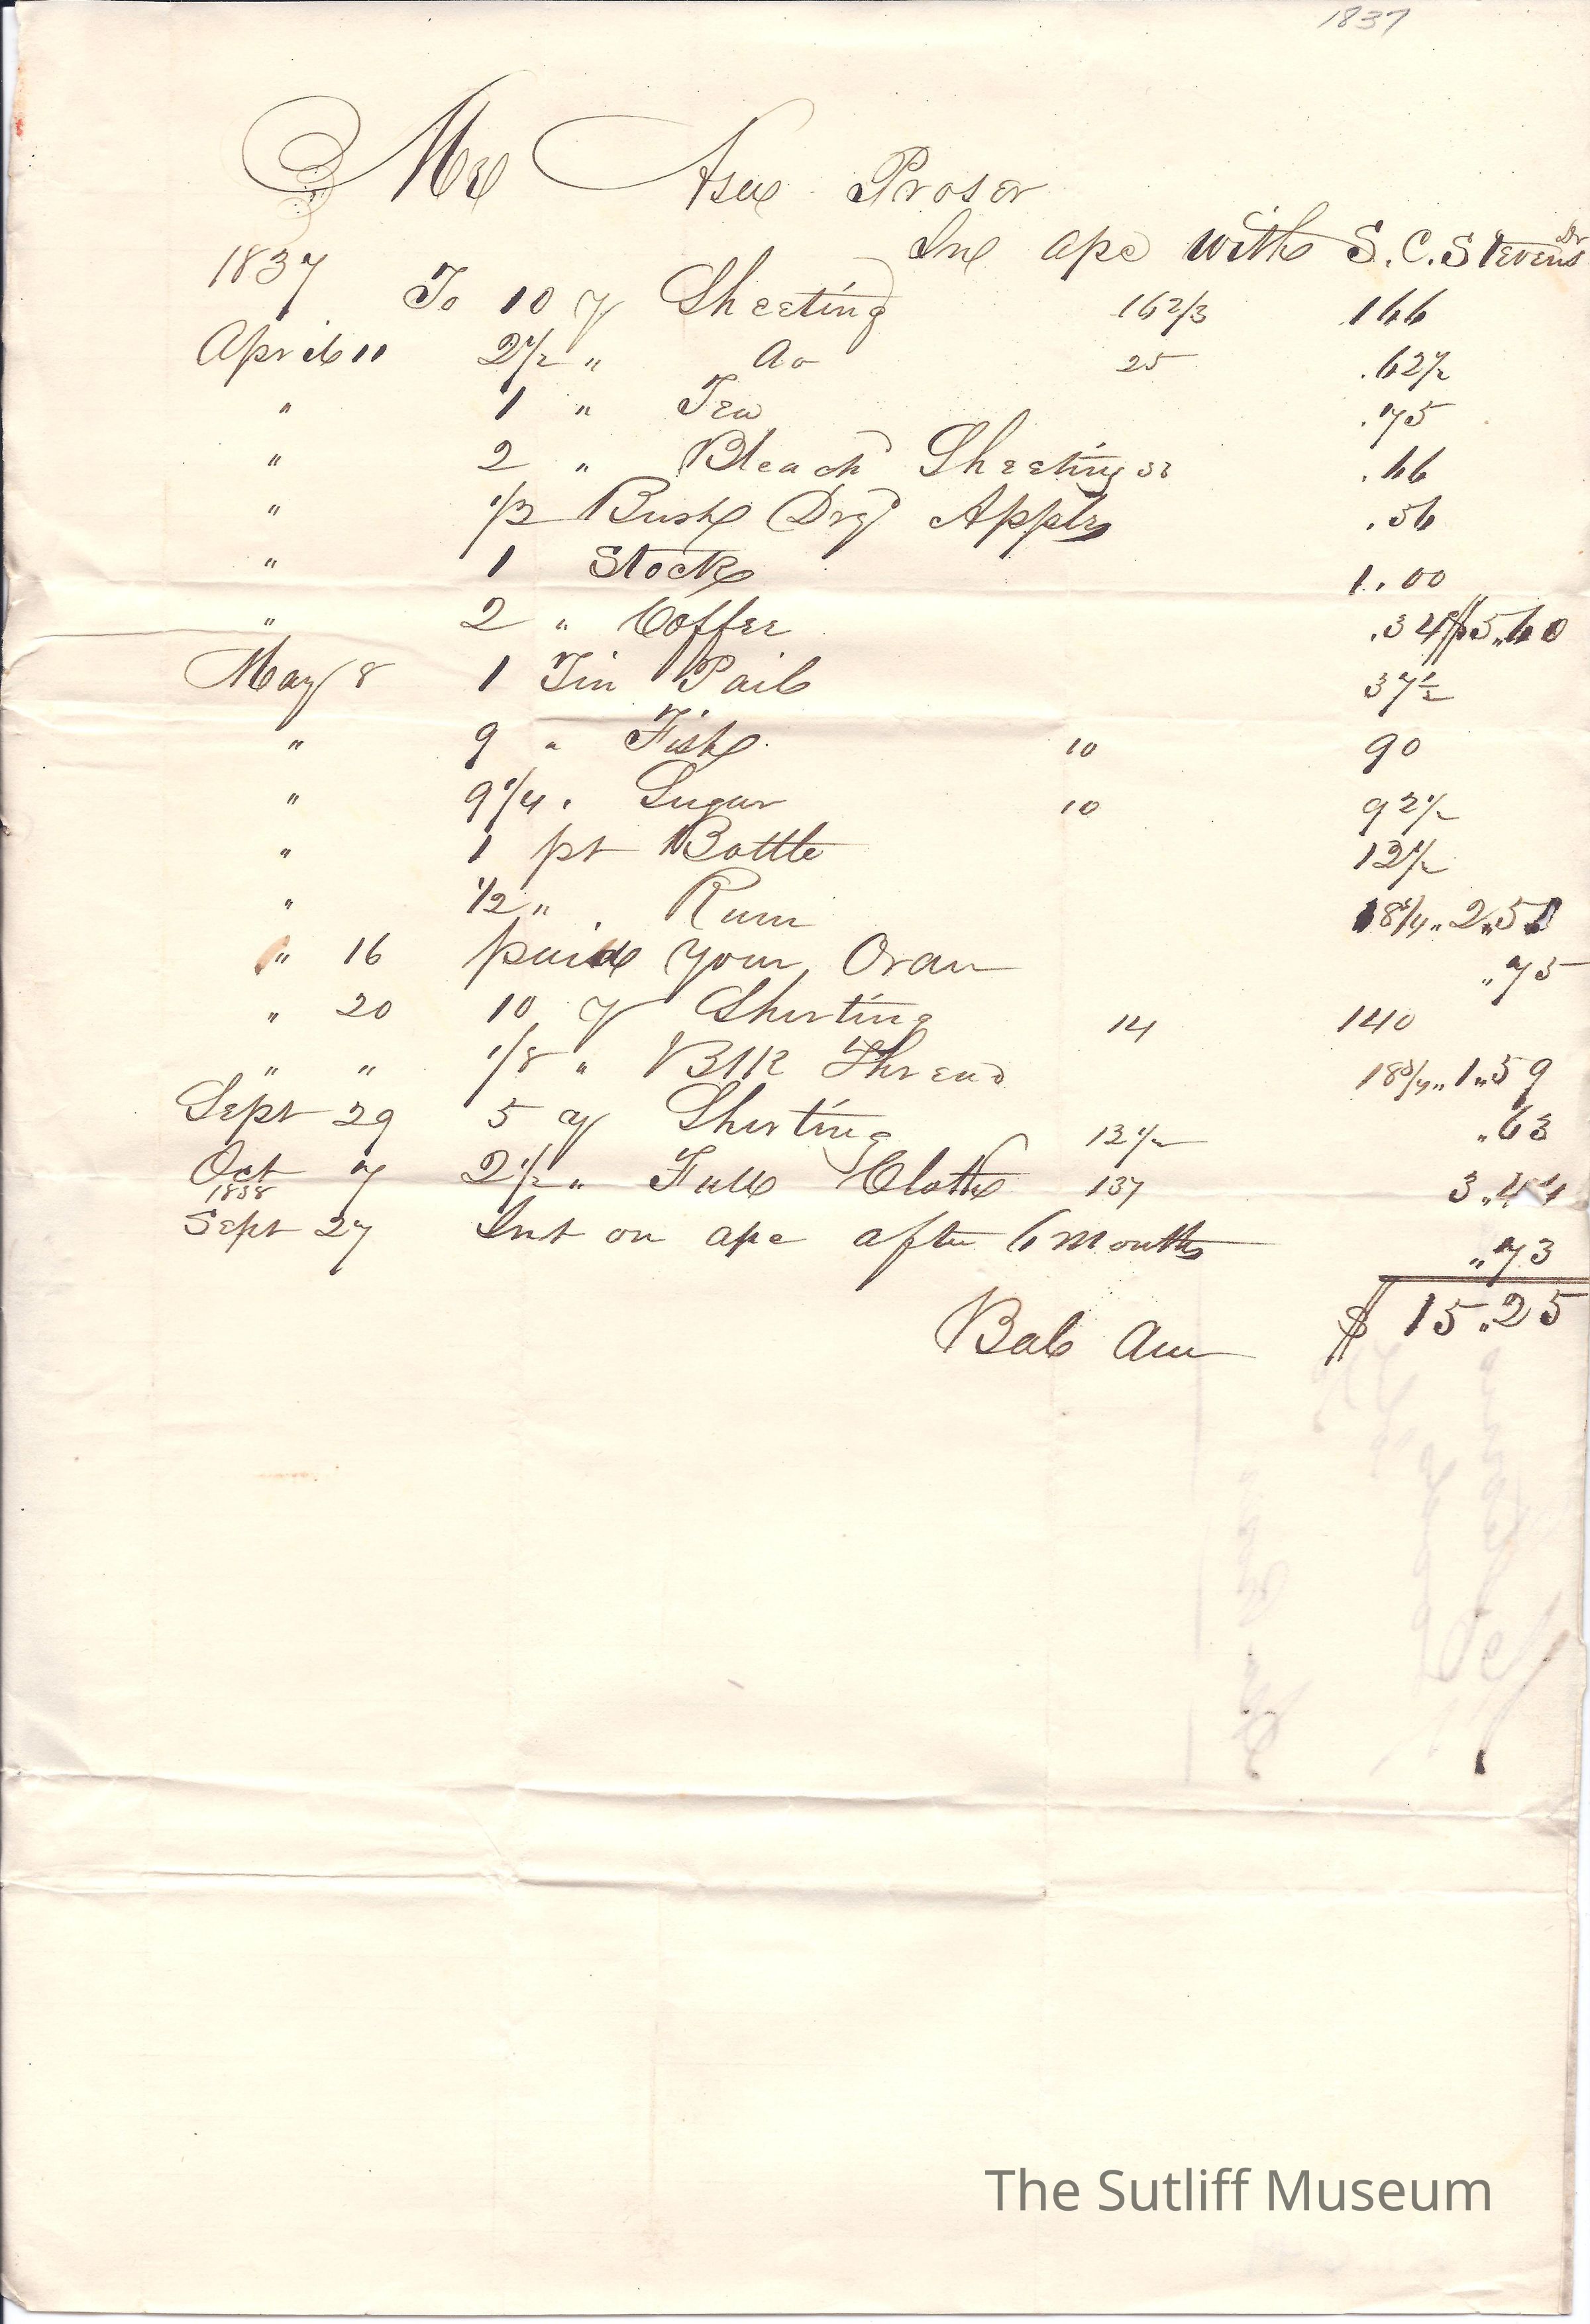 1837
Mr Asa Proser
In apc with S. C. Stevens Dr
1837 To 10 y Sheeting 16 2/3 166
April 11 2 1/2 " Do 25 .62 1/2
" 1 " Tea .75
" 2 " Bleach Sheeting 33 .66
" 1/2 Bush Dry Apples .56
" 1 Stock 1.00
" 2 " Coffee .34 $5.60
May 8 1 Tin Pail 37 1/2
" 9 " Fish 10 90
" 9 1/4 " Sugar 10 92 1/2
" 1 pt Bottle 12 1/2
" 1/2 " Rum 18 3/4 " 2 " 51
" 16 paid your Oran " 75
" 20 10 y Shirting 14 140
" " 1/8 " Blk Thread 18 3/4 " 1 " 59
Sept 29 5 y Shirting 12 1/2 " 63
Oct 7 2 1/2 " Full Cloth 137 3 " 44
1838
Sept 27 Int on apc after 6 months " 73
Bal Due $ 15.25
The Sutliff Museum